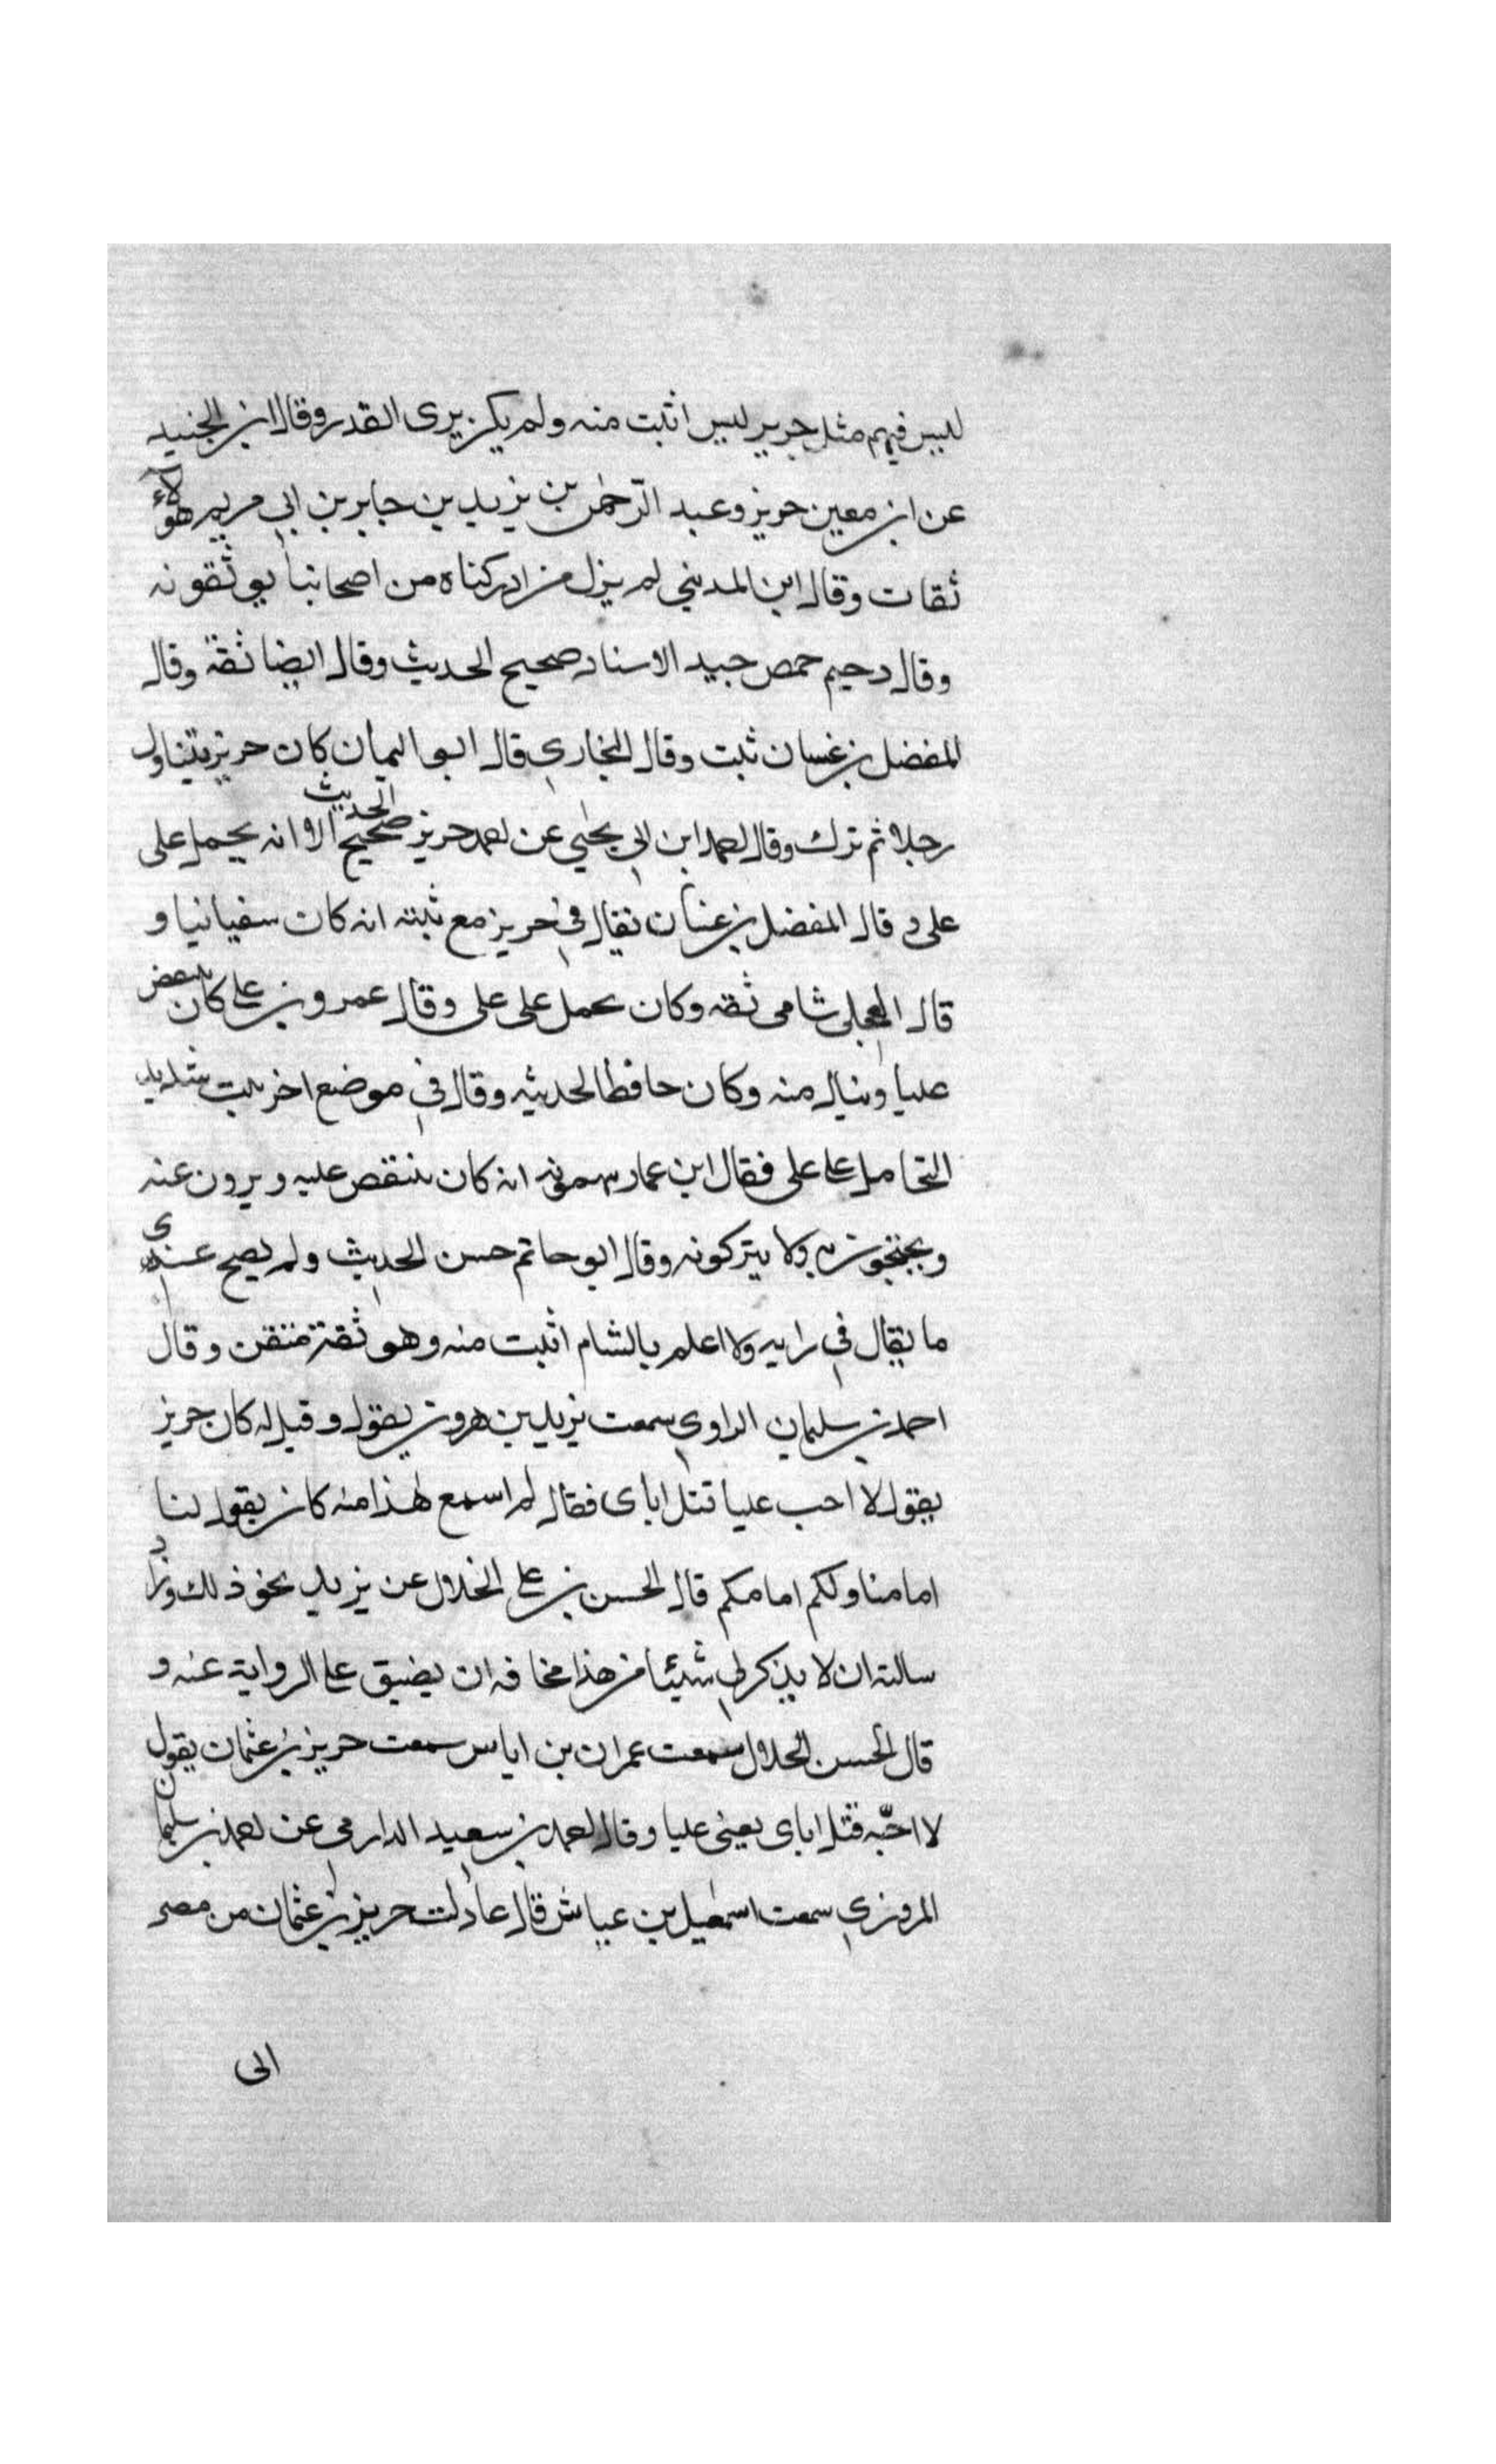 ليس فيهم مثل جرير ليس اثبت منه ولم يكن يرى القدر وقال ابن الجنيد
عن ابن معين حريز وعبد الرحمن بن يزيد بن جابر بن ابي مريم هؤلآء
ثقات وقال ابن المديني لم يزل من ادركناه من اصحابنا يوثقونه
وقال دحيم حمص جيد الاسناد صحيح الحديث وقال ايضا ثقة وقال
المفضل بن غسان ثبت وقال البخاري قال ابو اليمان كان حريز يتناول
رجلا ثم ترك وقال احمد ابن ابي يحيي عن احمد حريز صحيح الحديث الا انه يحمل على
على وقال المفضل بن غسان يقال في حريز مع ثبته انه كان سفيانيا و
قال العجلي شامى ثقه وكان يحمل على على وقال عمرو بن على كان ينتقص
عليا وينال منه وكان حافظا لحديثه وقال في موضع اخر ثبت شديد
التحامل على على فقال ابن عمار يتهمونه انه كان ينتقص عليه ويرون عنه
ويحتجون به ولا يتركونه وقال ابو حاتم حسن الحديث ولم يصح عندي
ما يقال في رايه ولا اعلم بالشام اثبت منه وهو ثقة متقن وقال
احمد بن سليمان الراوي سمعت يزيد بن هرون يقول وقيل له كان حريز
يقول لا احب عليا قتل اباى فقال لم اسمع هذا منه كان يقول لنا
امامنا ولكم امامكم قال الحسن بن على الخلال عن يزيد نحو ذلك وزاد
سالته ان لا يذكر لي شيئا من هذا مخافه ان يضيق على الرواية عنه و
قال الحسن الخلال سمعت عمران بن اياس سمعت حريز بن عثمان يقول
لا احبّه قتل اباى يعنى عليا وقال احمد بن سعيد الدارمي عن احمد بن سليمان
المروزي سمعت اسمعيل بن عياش قال عادلت حريز بن عثمان من مصر
الى